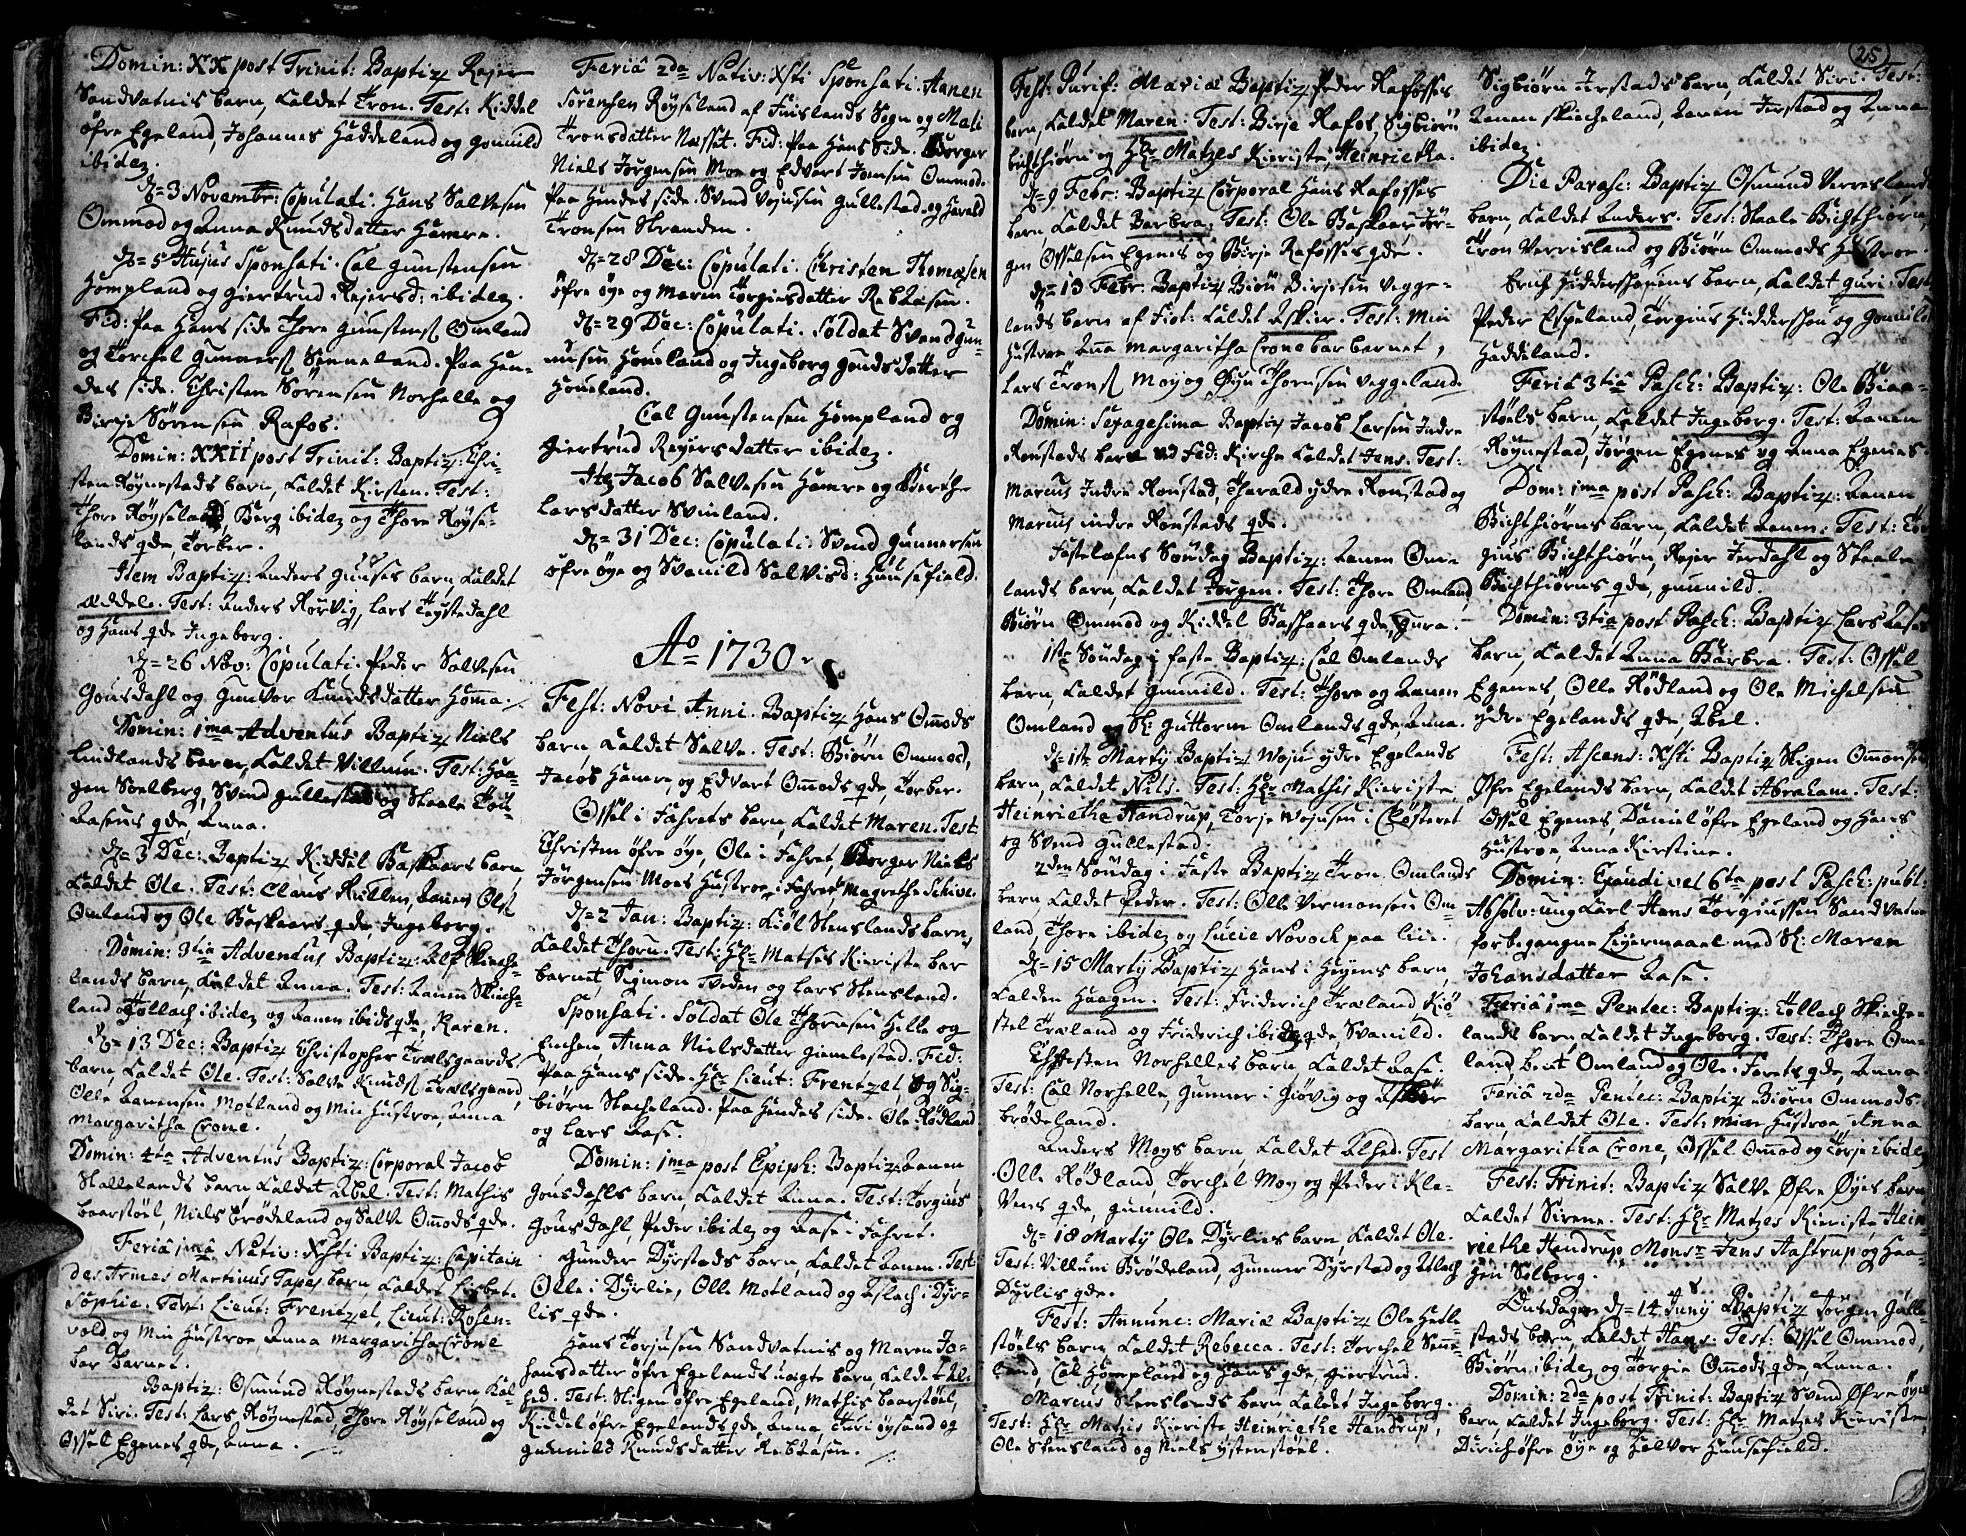 Domin: XX post Trinit: Baptiz Rejer
Sandvatnis barn, kaldet Tron. Test: Kiddel
öfre Egeland, Johannes Haddeland og gonnild
ibidez.
d= 3 Novembr: Copulati. Hans Salvesen
Ommod og Anna Knudsdatter Hamre.
d= 5 Hujus Sponsati. Cal gunstensen
Hompland og giertrud Rejersd: ibidez.
Fid: paa Hans side Thore gunstens Omland
og Torchel gunners Sinneland. Paa Hen-
des side Christen Sörensen Norhelle og
Birje Sörensen Rafos.
Domin: XXII post Trinit: Baptiz: Chri-
sten Röynestads barn, kaldet Kirsten. Test:
Thore Röyseland, Berg ibidez og Thore Röyse-
lands qde, Torber.
Item Baptiz: Anders guuses barn, kaldet
Æddel. Test: Anders Rörvig, Lars Tystedahl
og Hans qde Ingeborg.
d= 26 Nov: Copulati. Peder Salvesen
gousdahl og gunvor Knudsdatter Homa.
Domin: 1ma Adventus Baptiz Niels
Lindlands barn, kaldet Villum. Test: Haa-
gen Soelberg, Svend gullestad og Staale Tou-
Aasens qde, Anna.
d= 3 Dec: Baptiz Kiddil Baskaars barn,
kaldet Ole. Test: Claus Kullen, Aanen Ols
Omland og Ole Baskaars qde, Ingeborg.
Domin: 3tia Adventus Baptiz: Alf Skieche-
lands barn, kaldet Anna. Test: Aanen Skieche-
land Tollach ibidez og Aanen ibids qde, Karen.
d= 13 Dec: Baptiz Christopher Trælsgaards
barn, kaldet Ole. Test: Salve Knuds Trælsgaard,
Olle Aanensen Motland og Min Hustroe, Anna
Margaritha Crone.
Domin: 4ta Adventus Baptiz: Corporal Jacob
Stallelands barn kaldet Abel. Test: Mathis
baarstöel, Niels brödeland og Salve Omods qde.
Feriâ 1mâ Nativ: Xsti Baptiz: Capitain
des Armes Martinus Tapes barn, kaldet Lisbet
Sophie. Test: Lieut: Frentzel, Lieut: Rosen-
vold og Min Hustroe, Anna Margaritha Crone
bar Barnet.
Baptiz: Osmund Röynestads barn kal-
det Siri. Test: Lars Röynestad, Thore Röyseland og
Ossel Egenes qde, Anna.
Feriâ 2da Nativ: Xsti Sponsati. Aanen
Sörensen Röyseland af Finslands Sogn og Mali
Tronsdatter Næsset. Fid: paa Hans Side. Borger
Niels Jörgensen Moe og Edvart Jonsen Ommod.
Paa Hendes side. Svend Vojusen gullestad og Harald
Tronsen Stranden.
d= 28 Dec: Copulati. Christen Thomæsen
öfre öye og Maren Torgiersdatter Rebaasen.
d= 29 Dec: Copulati. Soldat Svend gun-
nusen Houeland og Ingeborg goudsdatter
Houeland.
Cal Gunstensen Hompland og
giertrud Reyersdatter ibidez.
Itz Jacob Salvesen Hamre og Berthe
Larsdatter Svinland.
d= 31 Dec: Copulati. Svend Gunnersen
öfre öye og Svanild Salvisd: Hunsefield.
Ao 1730
Fest: Novi Anni. Baptiz Hans Omods
barn, kaldet Salve. Test: Biörn Ommod,
Jacob Hamre, og Edvart Omods qde, Torber.
Ossel i Fahrets barn, kaldet Maren. Test
Christen öfre öye, Ole i Fahret, Borger Niels
Jörgensen Moes Hustroe, i Fahret, Magrethe Schive.
d= 2 Jan: Baptiz: Kiöl Stenslands barn,
kaldet Thoru. Test: Hr Matses Kieriste bar
barnet, Sigmon Tveden og Lars Stensland.
Sponsati. Soldat Ole Thorusen Helle og
Enchen Anna Nielsdatter Giemlestad. Fid:
Paa Hans side. Hr Lieut: Frentzel, og Sig-
biörn Stacheland. Paa Hendes side. Ole Rödland
og Lars Aase.
Domin: 1ma post Epiph: Baptiz Aanen
gousdahls barn, kaldet Anna. Test: Torgius
gousdahl, Peder ibidez og Aase i Fahret.
Gunder Dyrstads barn, kaldet Aanen. Test
Olle i Dyrlie, Olle Motland og Aslach i Dyr-
lis qde.
Hans Torjusen Sandvatnis og Maren Jo-
hansdatter öfre Egelands uægte barn kaldet Al-
hed. Test: Stigen öfre Egeland, Mathis baarstöel,
Kiddel öfre Egelands qde, Anna, Turi öysand og
gunnild Knudsdatter Rebaasen.
25
Fest: Purif: Mariæ Baptiz Peder Rafosses
barn, kaldet Maren. Test: Birje Rafos, Sigbiörn
bichthiörn og Hr Matzes Kieriste, Heinrietha.
d= 9 Febr: Baptiz Corporal Hans Rafosses
barn, kaldet Barbra. Test: Ole Baskaar Tor-
gen Osselsen Egenes og Birje Rafosses qde.
d= 13 Febr: Baptiz Biörn Birjesen Vegge-
lands barn af Fiot: kaldet Asker. Test: Min
Hustroe Anna Margaritha Crone bar barnet,
Lars Trons Moy og Öyu Thorusen Veggeland
Domin: Sexagesima Baptiz Jacob Larsen Indre
Ronstads barn ved Fed: Kirche kaldet Jens. Test:
Marcus Indre Ronstad, Tharald ydre Ronstad og
Marcus indre Ronstads qde.
Fastelafns Söndag Baptiz: Aanen Om-
lands barn, kaldet Jörgen. Test: Thore Omland,
Biörn Ommod og Kiddel Baskaars qde, gura.
1ste Söndag i faste Baptiz: Cal Omlands
barn, kaldet gunnild. Test: Thore og Aanen
Omland og Sl: guttorm Omlands qde, Anna.
d= 1ste Martÿ Baptiz Woju ydre Egelands
barn, kaldet Nils. Test: Hr Mathis Kieriste,
Heinriethe Handrup, Torje Wojusen i Closteret
og Svend Gullestad.
2den Söndag i Faste Baptiz Tron Omlands
barn kaldet Peder. Test: Olle Vermonsen Om-
land, Thore ibidez og Lucie Novock paa Liie.
d= 15 Martÿ Baptiz Hans i Heyens barn,
kalden Haagen. Test: Friderich Træland Kiö-
stel Træland og Friderich ibidez qde, Svanild.
Christen Norhelles barn, kaldet Aase.
Test: Cal Norhelle, Gunner i Giövig og
brödeland.
Anders Moys barn, kaldet Alhed. Test
Olle Rödland, Torchel Moy og Peder i Kle-
vens qde, gunnild.
d= 18 Martÿ Ole Dyrlies barn, kaldet Ole.
Test: Villum Brödeland, Gunner Dyrstad og Atlach
Dyrlis qde.
Fest: Annunc: Mariæ Baptiz Ole Hetle-
stöels barn, kaldet Rebecca. Test: Torchel Sinne-
land, Cal Hompland og Hans qde, giertrud.
Marcus Stenslands barn, kaldet Ingeborg.
Test: Hr Matzis Kieriste, Heinriethe Handrup,
Ole Stensland og Niels Ystenstöel.
Sigbiörn Jerstads barn, kaldet Siri. Test:
Aanen Skiecheland, Aanen Jerstad og Anna
ibidez.
Die Parasc: Baptiz Osmund Verresland
barn, kaldet Anders. Test: Staale Bichthiörn,
Tron Verrisland og Biörn Ommods Hustroe.
Erich Hiddershouens barn, kaldet Guri. Test
Peder Espeland, Torgius Hiddershou og Gonnild
Haddeland.
Feriâ 3tiâ Pasch: Baptiz: Ole Biaa-
stöels barn, kaldet Ingeborg. Test: Aanen
Röynestad, Jörgen Egenes og Anna Egenes.
Dom: 1ma post Pasch: Baptiz: Aanen
Bichthiörns barn, kaldet Aanen. Test: Tor-
gius Bichthiörn, Rejer Jerdahl og Staale
Bichthiörns qde, gunnild.
Domin: 3tia post Pasch: Baptiz Lars Aases
barn, kaldet Anna Barbra. Test: Ossel
Egenes, Olle Rödland og Ole Michelsen
ydre Egelands qde, Abel.
Fest: Ascens: Xsti Baptiz Stigen Omonsen
Öfre Egelands barn, kaldet Abraham. Test:
Ossel Egenes, Daniel öfre Egeland og Hans
Hustroe, Anna Kirstine.
Domin: Exaudi vel 6ta post Pasch: publ:
Absolv: ung Karl Hans Torgiussen Sandvatne
forbegangne Leyermaal med Sl: Maren
Johansdatter Aase
Feriâ 1ma Pentec: Baptiz: Tollach Skieche-
lands barn kaldet Ingeborg. Test: Thore Om-
land, bent Omland og Ole Forets qde, Anna
Feriâ 2da Pentec: Baptiz Biörn Ommods
barn, kaldet Ole. Test: Min Hustroe, Anna
Margaritha Crone, Ossel Omod og Torje ibidez
Fest: Trinit: Baptiz Salve Öfre Öyes barn
kaldet Sirene. Test: Hr Matzes Kieriste, Hein-
riethe Handrup, Monsr Jens Aastrup og Haa-
gen Solberg.
Onsdagen d= 14 Junÿ Baptiz Jörgen Gulle-
stads barn, kaldet Hans. Test: Ossel Ommod,
Biörn ibidez og Torgie Omods qde, Anna.
Domin: 2da post Trinit: Baptiz Svend Öfre öyes
barn, kaldet Ingeborg. Test: Hr Matzes Kieriste,
Dirich öfre öye og Halvor Hunsefield.